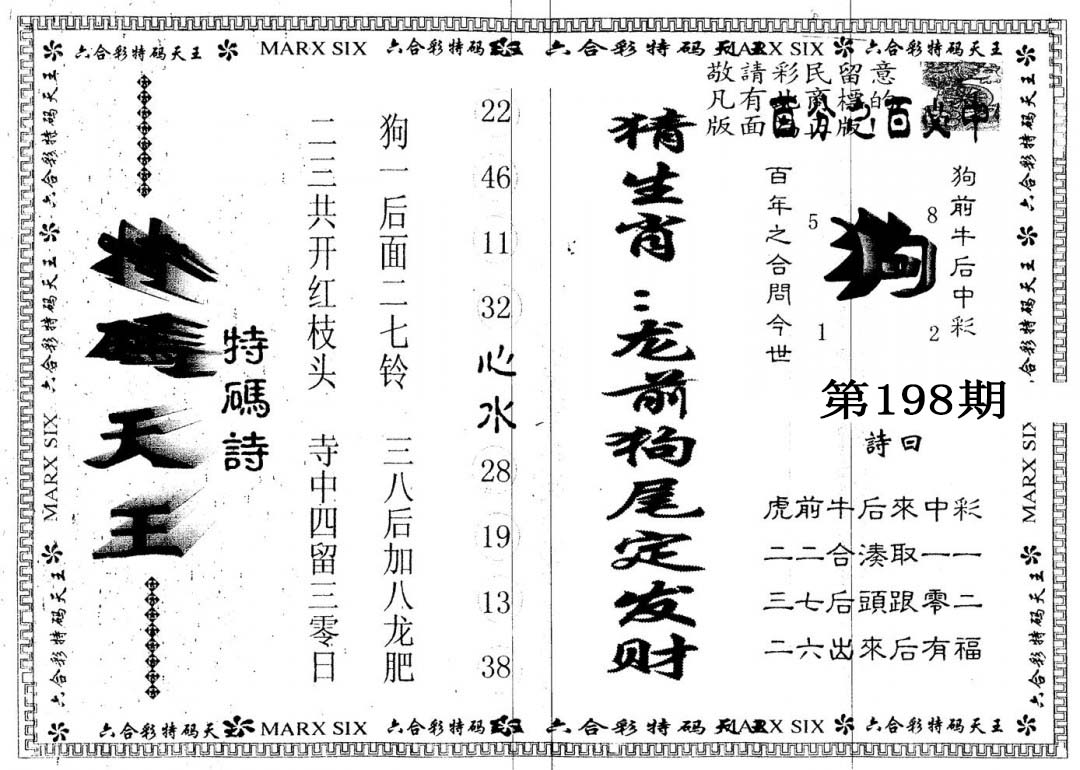 六合彩特码天王 MARX SIX 六合彩特码 六合彩特码天王 MARX SIX 六合彩特码天王
敬請彩民留意
凡有此商標的
版面為 版
百分之百 中
狗前牛后中彩
狗
5
8
1
2
百年之合問今世
第198期
詩曰
虎前牛后來中彩
二二合湊取一一
三七后頭跟零二
二六出來后有福
猜生肖：龙前狗尾定发财
22
46
11
32
心水
28
19
13
38
狗一后面二七铃 三八后加八龙肥
二三共开红枝头 寺中四留三零日
特碼詩
特碼天王
六合彩特码天王 六合彩特码天王 MARX SIX 六合彩特码天王
六合彩特码天王 六合彩特码天王 MARX SIX 六合彩特码天王
六合彩特码天王 MARX SIX 六合彩特码 六合彩特码天王 MARX SIX 六合彩特码天王